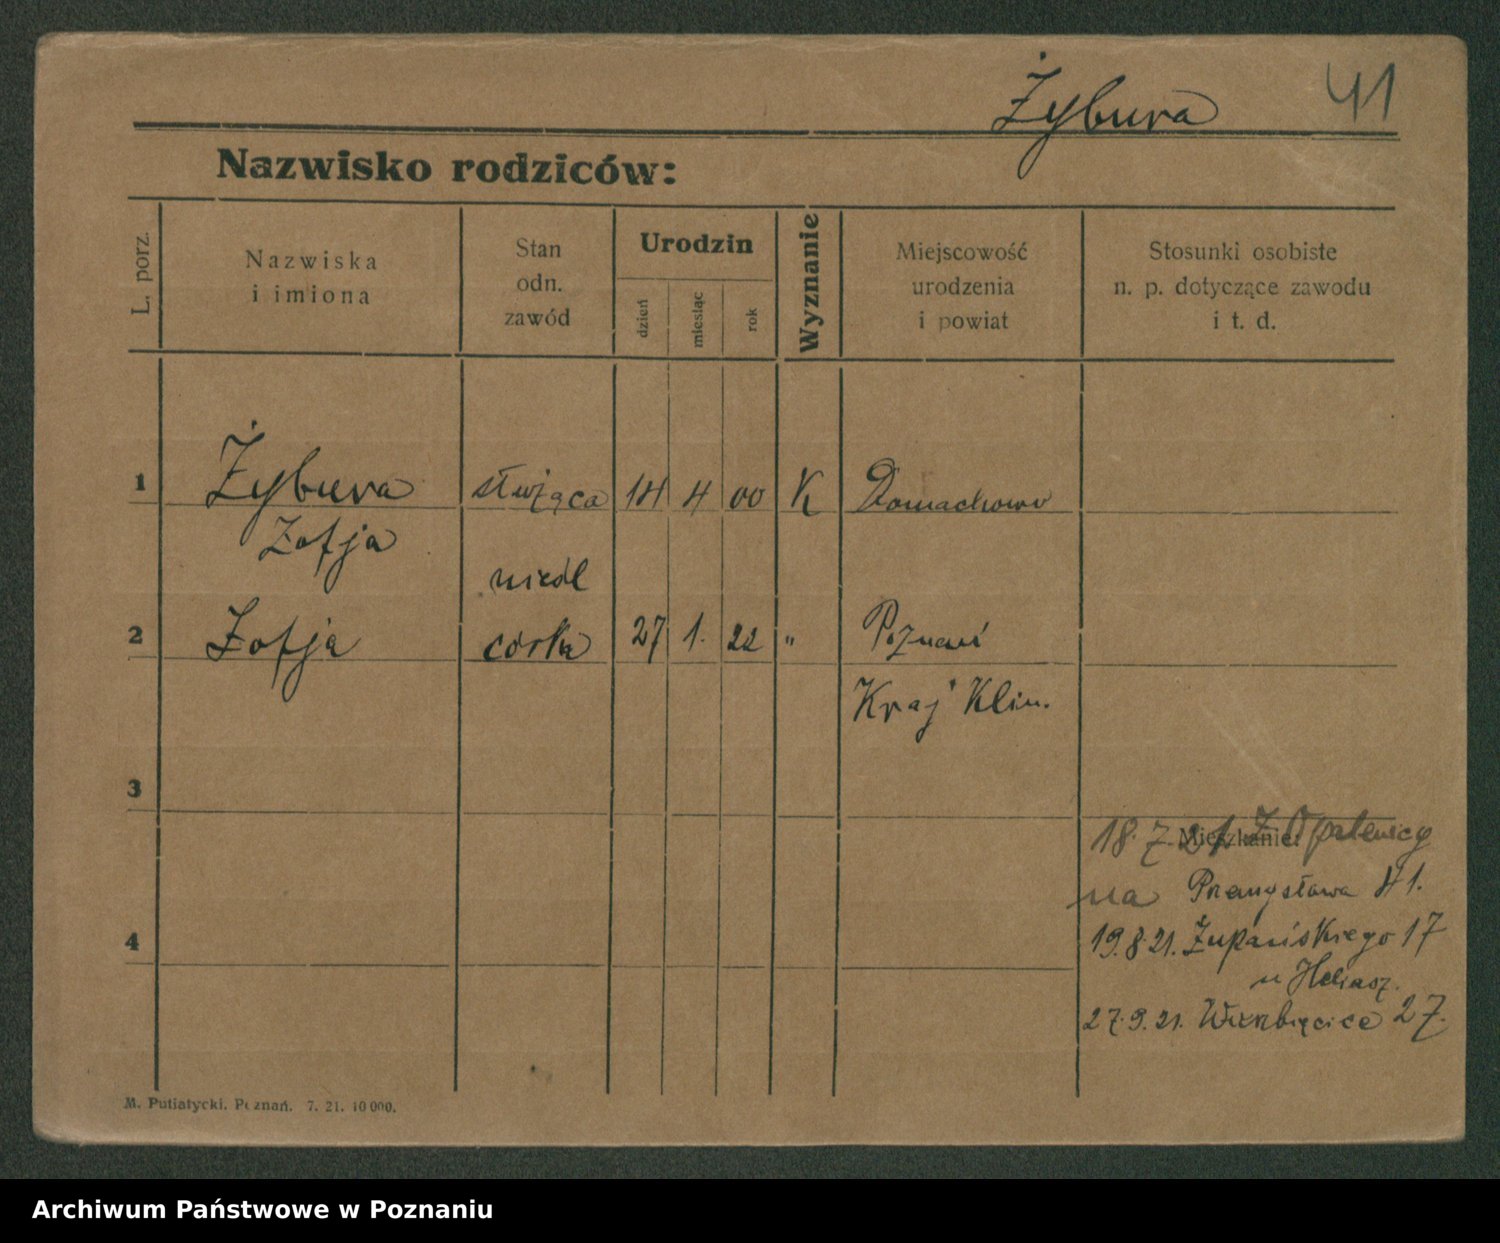 Żybura 41
Nazwisko rodziców:
L. porz.
Nazwiska
i imiona
Stan
odn.
zawód
Urodzin
dzień
miesiąc
rok
Wyznanie
Miejscowość
urodzenia
i powiat
Stosunki osobiste
n. p. dotyczące zawodu
i t. d.
1 Żybura służąca 14 4 00 K Domachowo
Zofja
nieśl
2 Zofja córka 27 1. 22 " Poznań
Kraj Klin.
3
Mieszkanie:
18.7.21. Z Opalenicy
na Przemysłowa 41.
4
19.8.21. Żupańskiego 17
u Heliasz.
27.9.21. Wierzbięcice 27.
M. Putiatycki. Poznań. 7. 21. 10 000.
Archiwum Państwowe w Poznaniu